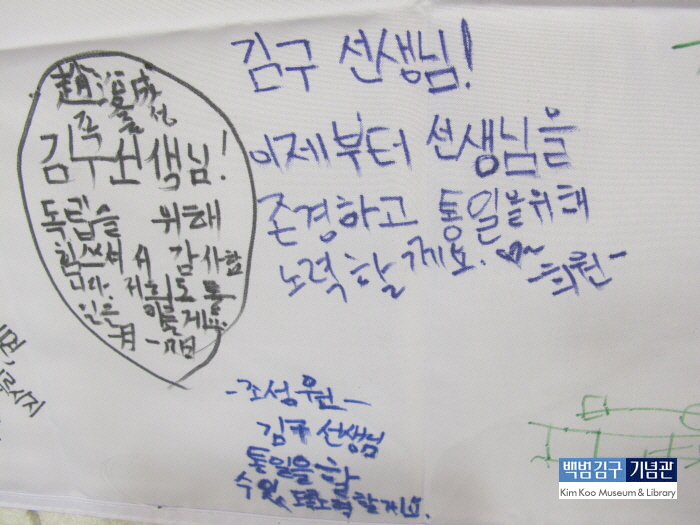 김구 선생님!
이제부터 선생님을
존경하고 통일을위해
노력할게요.
-희원-
김구선생님!
독립을 위해
힘쓰셔서 감사합
니다. 저희도 통
일은
-조성원-
김구 선생님
통일을 할
수있도록노력할게요.
백범김구 기념관
Kim Koo Museum & Library